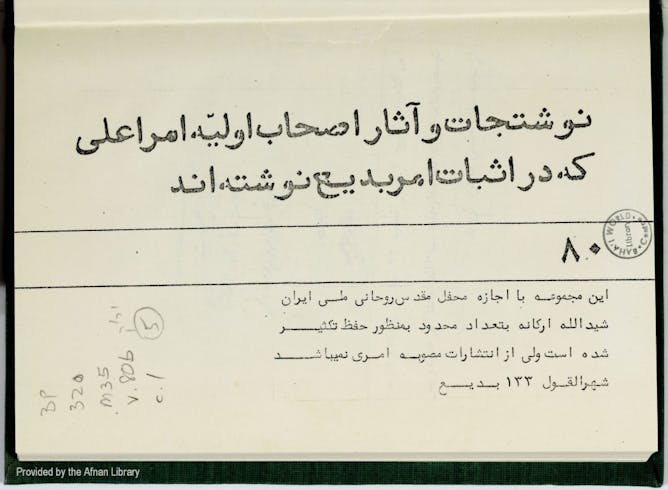 نوشتجات و آثار اصحاب اولیّه امر اعلی
که در اثبات امر بدیع نوشته اند
۸۰
این مجموعه با اجازه محفل مقدس روحانی ملی ایران
شیدالله ارکانه بتعداد محدود بمنظور حفظ تکثیر
شده است ولی از انتشارات مصوبه امری نمیباشد
شهرالقول ۱۳۳ بدیع
BAHA'I WORLD
Library
BP
320
.M35
v.80b
c.1
5
Provided by the Afnan Library